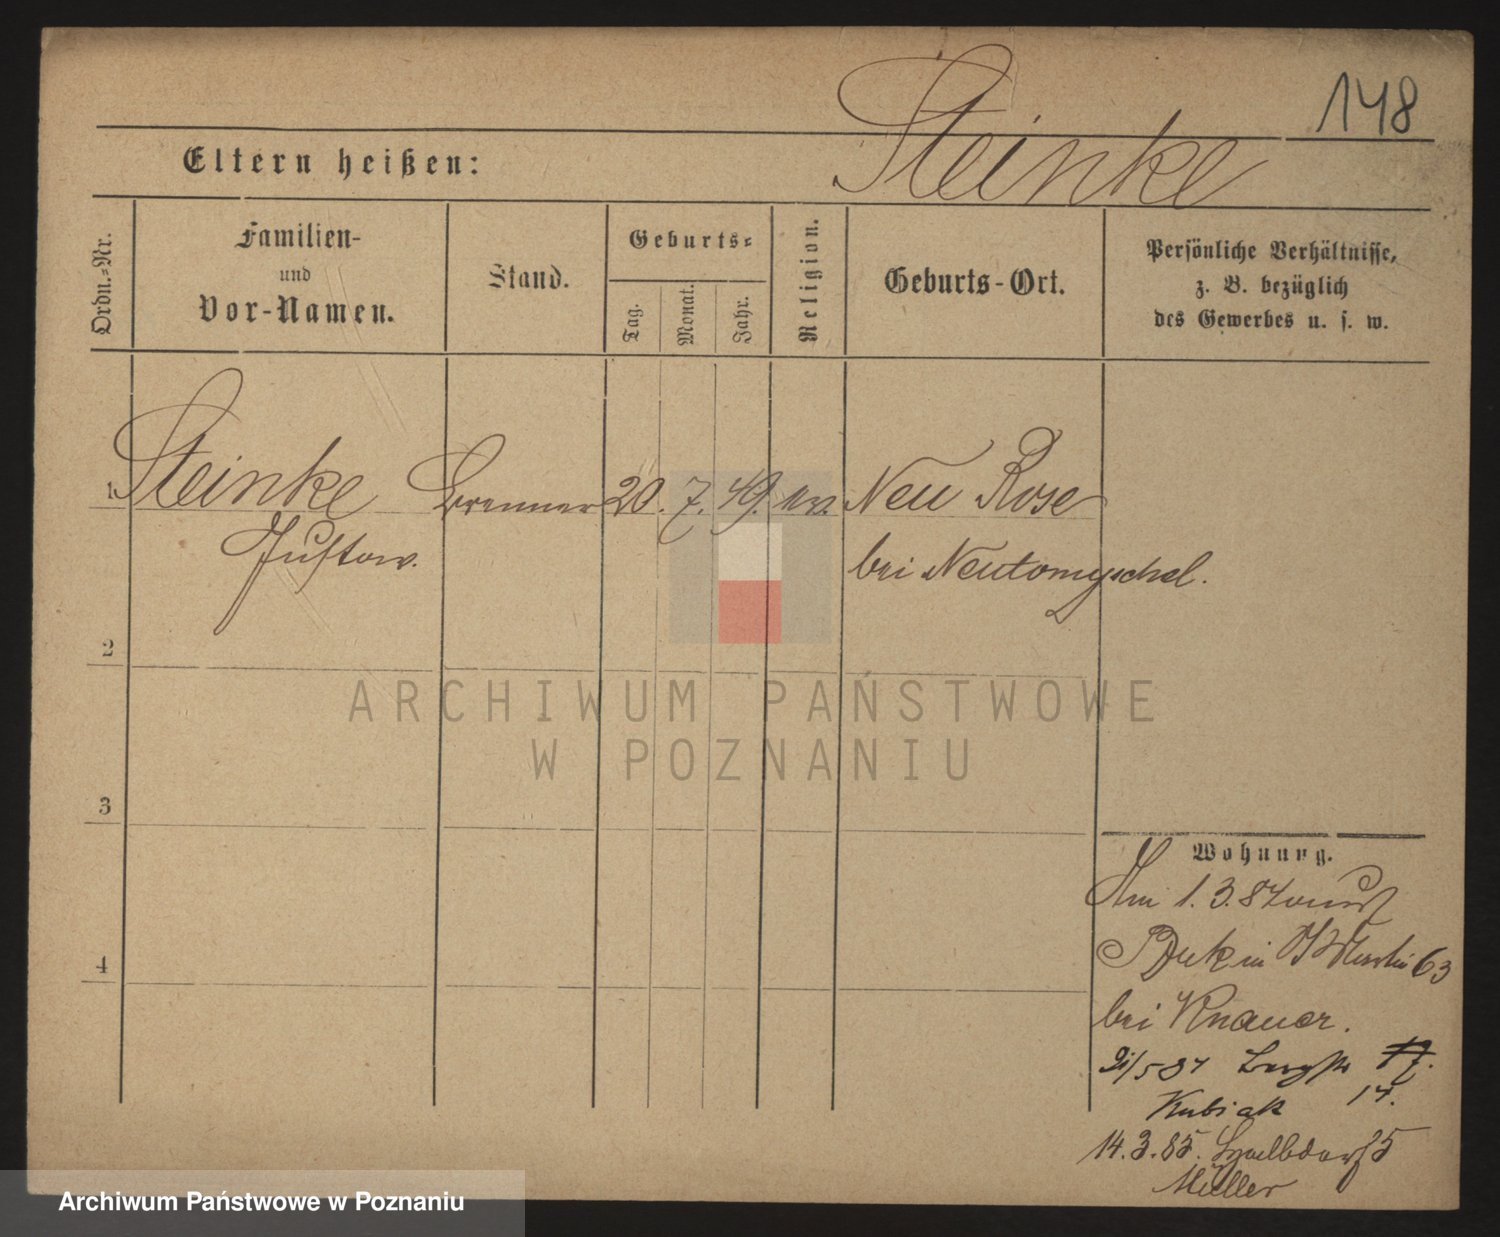 148
Steinke
Eltern heißen:
Ordn.=Nr.
Familien-
und
Vor-Namen.
Stand.
Geburts=
Tag.
Monat.
Jahr.
Religion.
Geburts-Ort.
Persönliche Verhältnisse,
z. B. bezüglich
des Gewerbes u. s. w.
1 Steinke Brenner 20. 7. 49. ev. Neu Rose
Gustav. bei Neutomyschel.
2
ARCHIWUM PAŃSTWOWE
W POZNANIU
3
Wohnung.
1. 3. 84
4
63
bei Knauer.
17.
Kubiak 14.
14. 3. 85. 5
Müller
Archiwum Państwowe w Poznaniu